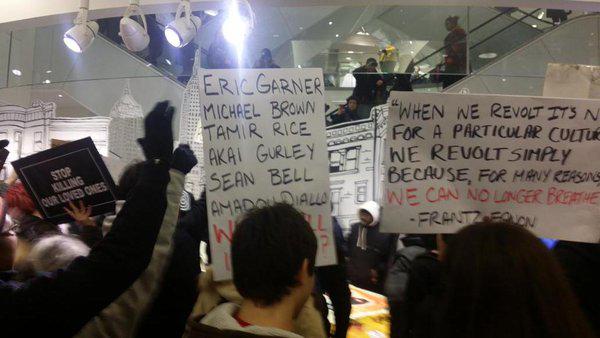 STOP
KILLING
OUR LOVED ONES
ERIC GARNER
MICHAEL BROWN
TAMIR RICE
AKAI GURLEY
SEAN BELL
AMADOU DIALLO
"WHEN WE REVOLT IT'S N
FOR A PARTICULAR CULTU
WE REVOLT SIMPLY
BECAUSE, FOR MANY REASONS
WE CAN NO LONGER BREATHE
- FRANTZ FANON